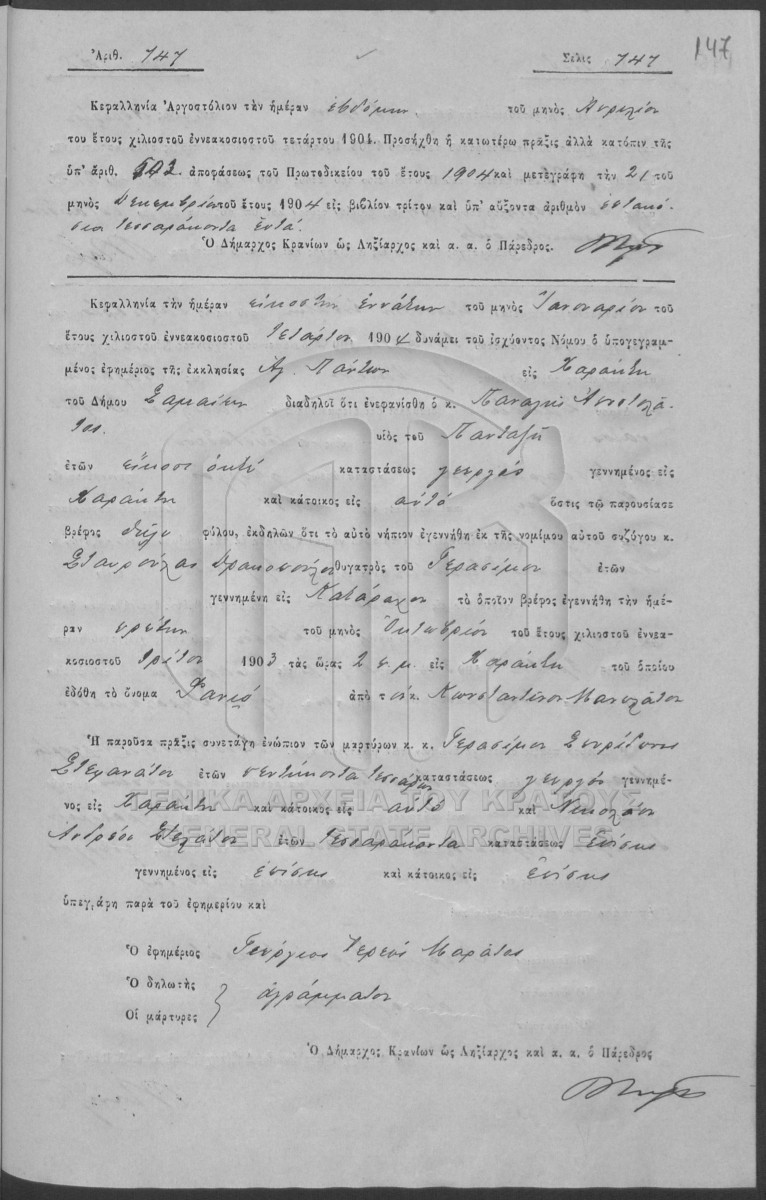 147
Ἀριθ. 747
Σελὶς 747
Κεφαλληνία Ἀργοστόλιον τὴν ἡμέραν ἑβδόμην τοῦ μηνὸς Ἀπριλίου
του ἔτους χιλιοστοῦ ἐννεακοσιοστοῦ τετάρτου 1904. Προσήχθη ἡ κατωτέρω πρᾶξις ἀλλὰ κατόπιν τῆς
ὑπ' ἀριθ. ἀποφάσεως τοῦ Πρωτοδικείου τοῦ ἔτους 1904 καὶ μετεγράφη τὴν 21 τοῦ
μηνὸς Δεκεμβρίου τοῦ ἔτους 1904 εἰς βιβλίον τρίτον καὶ ὑπ' αὔξοντα ἀριθμὸν ἑπτακό-
σια τεσσαράκοντα ἑπτά.
Ὁ Δήμαρχος Κρανίων ὡς Ληξίαρχος καὶ α. α. ὁ Πάρεδρος.
Κεφαλληνία τὴν ἡμέραν εἰκοστὴν ἐννάτην τοῦ μηνὸς Ἰανουαρίου τοῦ
ἔτους χιλιοστοῦ ἐννεακοσιοστοῦ τετάρτου 1904 δυνάμει τοῦ ἰσχύοντος Νόμου ὁ ὑπογεγραμ-
μένος ἐφημέριος τῆς ἐκκλησίας Ἁγ. Πάντων εἰς Χαράκτη
τοῦ Δήμου Σαμαίων διαδηλοῖ ὅτι ἐνεφανίσθη ὁ κ. Παναγῆς Ἀποστολά-
τος υἱὸς τοῦ Πανταζῆ
ἐτῶν εἴκοσι ὀκτὼ καταστάσεως γεωργὸς γεννημένος εἰς
Χαράκτη καὶ κάτοικος εἰς αὐτό ὅστις τῷ παρουσίασε
βρέφος θῆλυ φύλου, ἐκδηλῶν ὅτι τὸ αὐτὸ νήπιον ἐγεννήθη ἐκ τῆς νομίμου αὐτοῦ συζύγου κ.
Σταυρούλας Δρακοπούλου θυγατρὸς τοῦ Γερασίμου ἐτῶν
γεννημένη εἰς Κατάραχον τὸ ὁποῖον βρέφος ἐγεννήθη τὴν ἡμέ-
ραν πρώτην τοῦ μηνὸς Ὀκτωβρίου τοῦ ἔτους χιλιοστοῦ ἐννεα-
κοσιοστοῦ τρίτου 1903 τὰς ὥρας 2 π. μ. εἰς Χαράκτη τοῦ ὁποίου
ἐδόθη τὸ ὄνομα Φανιό ἀπὸ τὸν κ. Κωνσταντῖνον Μανολάτον
Ἡ παροῦσα πρᾶξις συνετάγη ἐνώπιον τῶν μαρτύρων κ. κ. Γερασίμου Σπυρίδωνος
Στεφανάτου ἐτῶν πεντήκοντα τεσσάρων καταστάσεως γεωργὸς γεννημέ-
νος εἰς Χαράκτη καὶ κάτοικος εἰς αὐτό καὶ Νικολάου
ΓΕΝΙΚΑ ΑΡΧΕΙΑ ΤΟΥ ΚΡΑΤΟΥΣ
GENERAL STATE ARCHIVES
Ἀνδρέου ἐτῶν τεσσαράκοντα καταστάσεως ἐπίσης
γεννημένος εἰς ἐπίσης καὶ κάτοικος εἰς ἐπίσης
ὑπεγράφη παρὰ τοῦ ἐφημερίου καὶ
Ὁ ἐφημέριος Γεώργιος Ἱερεὺς Μαράτος
Ὁ δηλωτὴς
ἀγράμματοι
Οἱ μάρτυρες
Ὁ Δήμαρχος Κρανίων ὡς Ληξίαρχος καὶ α. α. ὁ Πάρεδρος